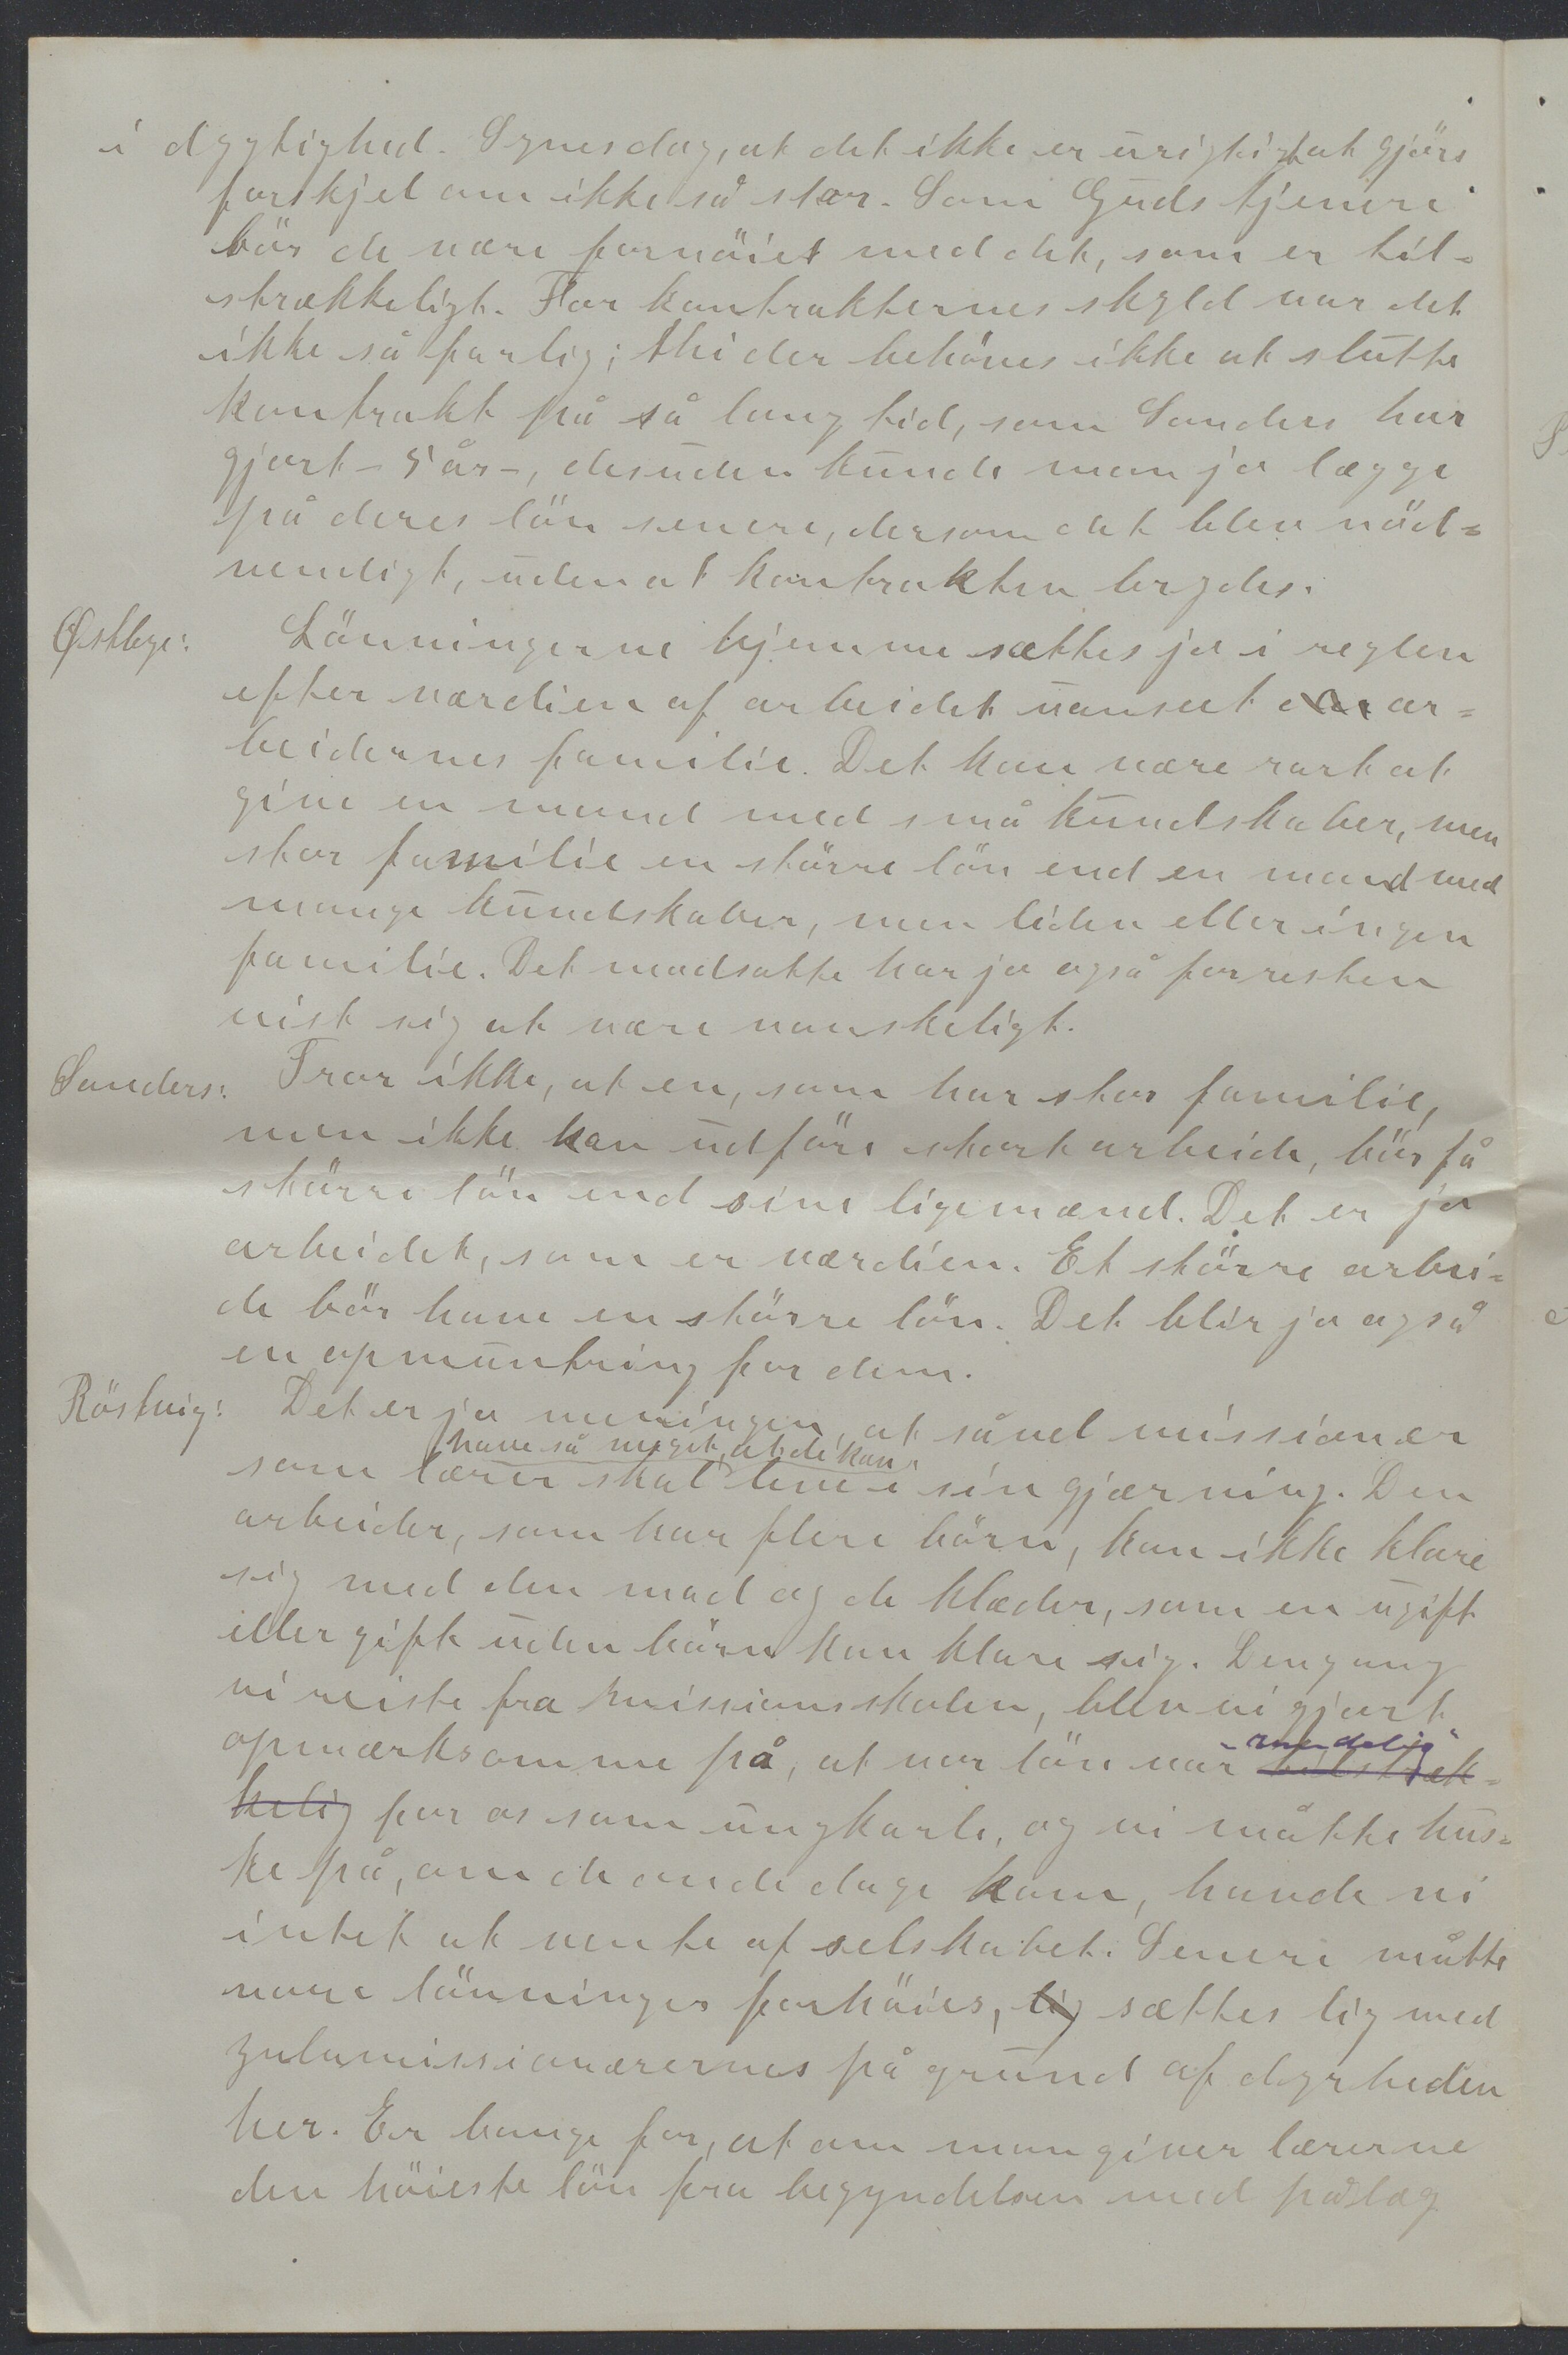 i dygtighed. Synes dog, at det ikke er urigtigt at gjöre
forskjel om ikke så stor. Som Guds tjenere
bör de være fornöiet med det, som er til-
strækkeligt. For kontrakternes skyld var det
ikke så farlig; thi der behöves ikke at slutte
kontrakt på så lang tid, som Sanders har
gjort – 5 år –, desuden kunde man jo lægge
på deres lön senere, dersom det blev nöd-
vendigt, uden at kontrakten brydes.
Østbye: Lönningerne hjemme sættes jo i reglen
efter værdien af arbeidet uanseet ar-
beidernes familie. Det kan være rart at
give en mand med små kundskaber, men
stor familie en större lön end en mand med
mange kundskaber, men liden eller ingen
familie. Det modsatte har jo også forresten
vist sig at være vanskeligt.
Sanders: Tror ikke, at en, som har stor familie,
men ikke kan udföre stort arbeide, bör få
större lön end sine ligemænd. Det er jo
arbeidet, som er værdien. Et större arbei-
de bör have en större lön. Det blir jo også
en opmuntring for dem.
Röstvig: Det er jo meningen, at såvel missionær
have så meget, at de kan
som lærer skal leve i sin gjærning. Den
arbeider, som har flere börn, kan ikke klare
sig med den mad og de klæder, som en ugift
eller gift uden börn kan klare sig. Dengang
vi reiste fra missionsskolen, blev vi gjort
opmærksomme på, at vor lön var "rundelig" tilstræk-
kelig for os som ungkarle, og vi måtte hus-
ke på, om de onde dage kom, havde vi
intet at vente af selskabet. Senere måtte
vore lönninger forhöies, lig sættes lig med
zulumissionærernes på grund af dyrheden
her. Er bange for, at om man giver lærerne
den höieste lön fra begyndelsen med pålæg